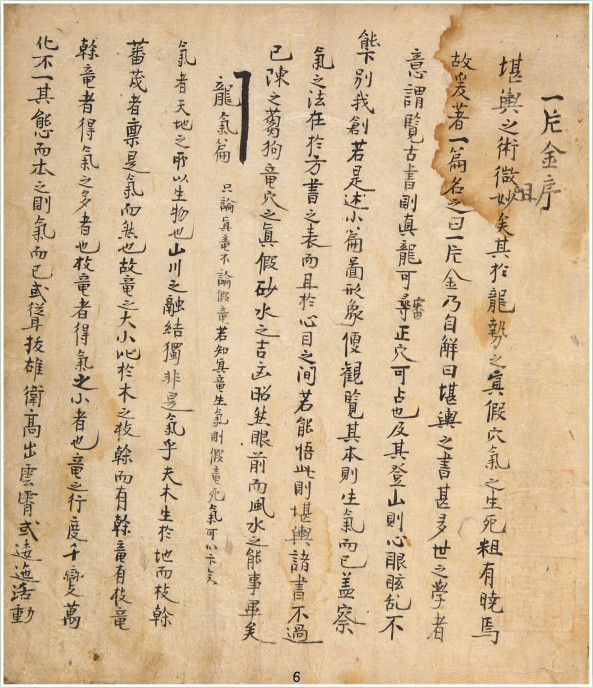 一片金序
堪輿之術微妙矣其於龍勢之眞假穴氣之生死粗有曉焉
粗
故爰著一篇名之曰一片金乃自解曰堪輿之書甚多世之學者
意謂覽古書則眞龍可尋正穴可占也及其登山則心眼眩乱不
審
能別我創若是述小篇啚形象便觀覽其本則生氣而已盖察
氣之法在於方書之表而且於心目之间若能悟此則堪輿諸書不過
已陳之蒭狗竜穴之眞假砂水之吉凶昭然眼前而風水之能事畢矣
龍氣篇 只論眞竜不論假竜若知眞竜生氣則假竜死氣可以卞矣
氣者天地之所以生物也山川之融結獨非是氣乎夫木生於地而枝榦
蕃茂者禀是氣而然也故竜之大小比於木之枝榦而有榦竜有枝竜
榦竜者得氣之多者也枝竜者得氣之小者也竜之行度千變萬
化不一其態而本之則氣而已或從耳拔雄衛高出雲霄或逶迤活動
6